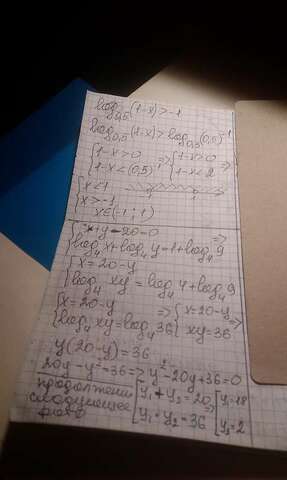 log₀,₅(1-x)>-1
log₀,₅(1-x)>log₀,₅(0,5)⁻¹
{1-x>0 {1-x<(0,5)⁻¹ => {1-x>0 {1-x<2 =>
{x<1 {x>-1
x∈(-1;1)
{x+y-20=0 {log₄x+log₄y=1+log₄9 =>
{x=20-y {log₄xy=log₄4+log₄9
{x=20-y {log₄xy=log₄36 => {x=20-y {xy=36 =>
y(20-y)=36
20y-y²=36=>y²-20y+36=0
продолжение следующее фото
[y₁+y₂=20 [y₁·y₂=36 => [y₁=18 [y₂=2